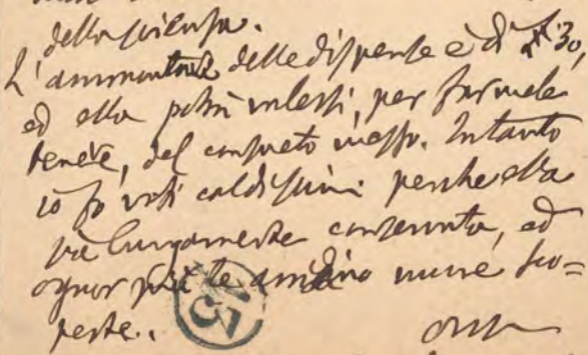 della scienza.
L'ammontare delle dispense è di 30,
ed ella potrà valersi, per farmele
tenere, del consueto mezzo. Intanto
io fo voti caldissimi perché ella
sia lungamente conservata, ed
ognor più le arridino nuove sco=
perte.
15